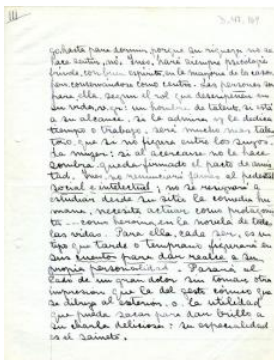 III
D. 47. 169
go, hasta para dormir, porque su riqueza no la
hace sentir, no. Inés, hará siempre psicología
frívola, con buen espíritu, en la mayoría de los casos,
pero conservandose como centro. Las personas son
para ella, según el rol que desempeñen en
su vida, v. gr: un hombre de talento, si está
a su alcance, si la admira y le dedica
tiempo o trabajo, será mucho más talen-
toso, que si no figura entre los suyos.
La mujer; si al acercarse no le hace
sombra, queda firmado el pacto de amis-
tad. Inés, no renunciará jamás al pedestal
social e intelectual; no se resignará a
estudiar desde su sitio la comedia hu-
mana, necesita actuar como protagonis-
ta ... como heroína en la novela de todas
las vidas. Para ella, cada ser, es un
tipo que tarde o temprano figurará en
sus cuentos para dar realce a su
propia personalidad. Pasará al
lado de un gran dolor sin tomar otra
impresión que la del gesto cómico que
se dibuja al exterior, o la utilidad
que pueda sacar para dar brillo a
su charla deliciosa; su especialidad
es el sainete.